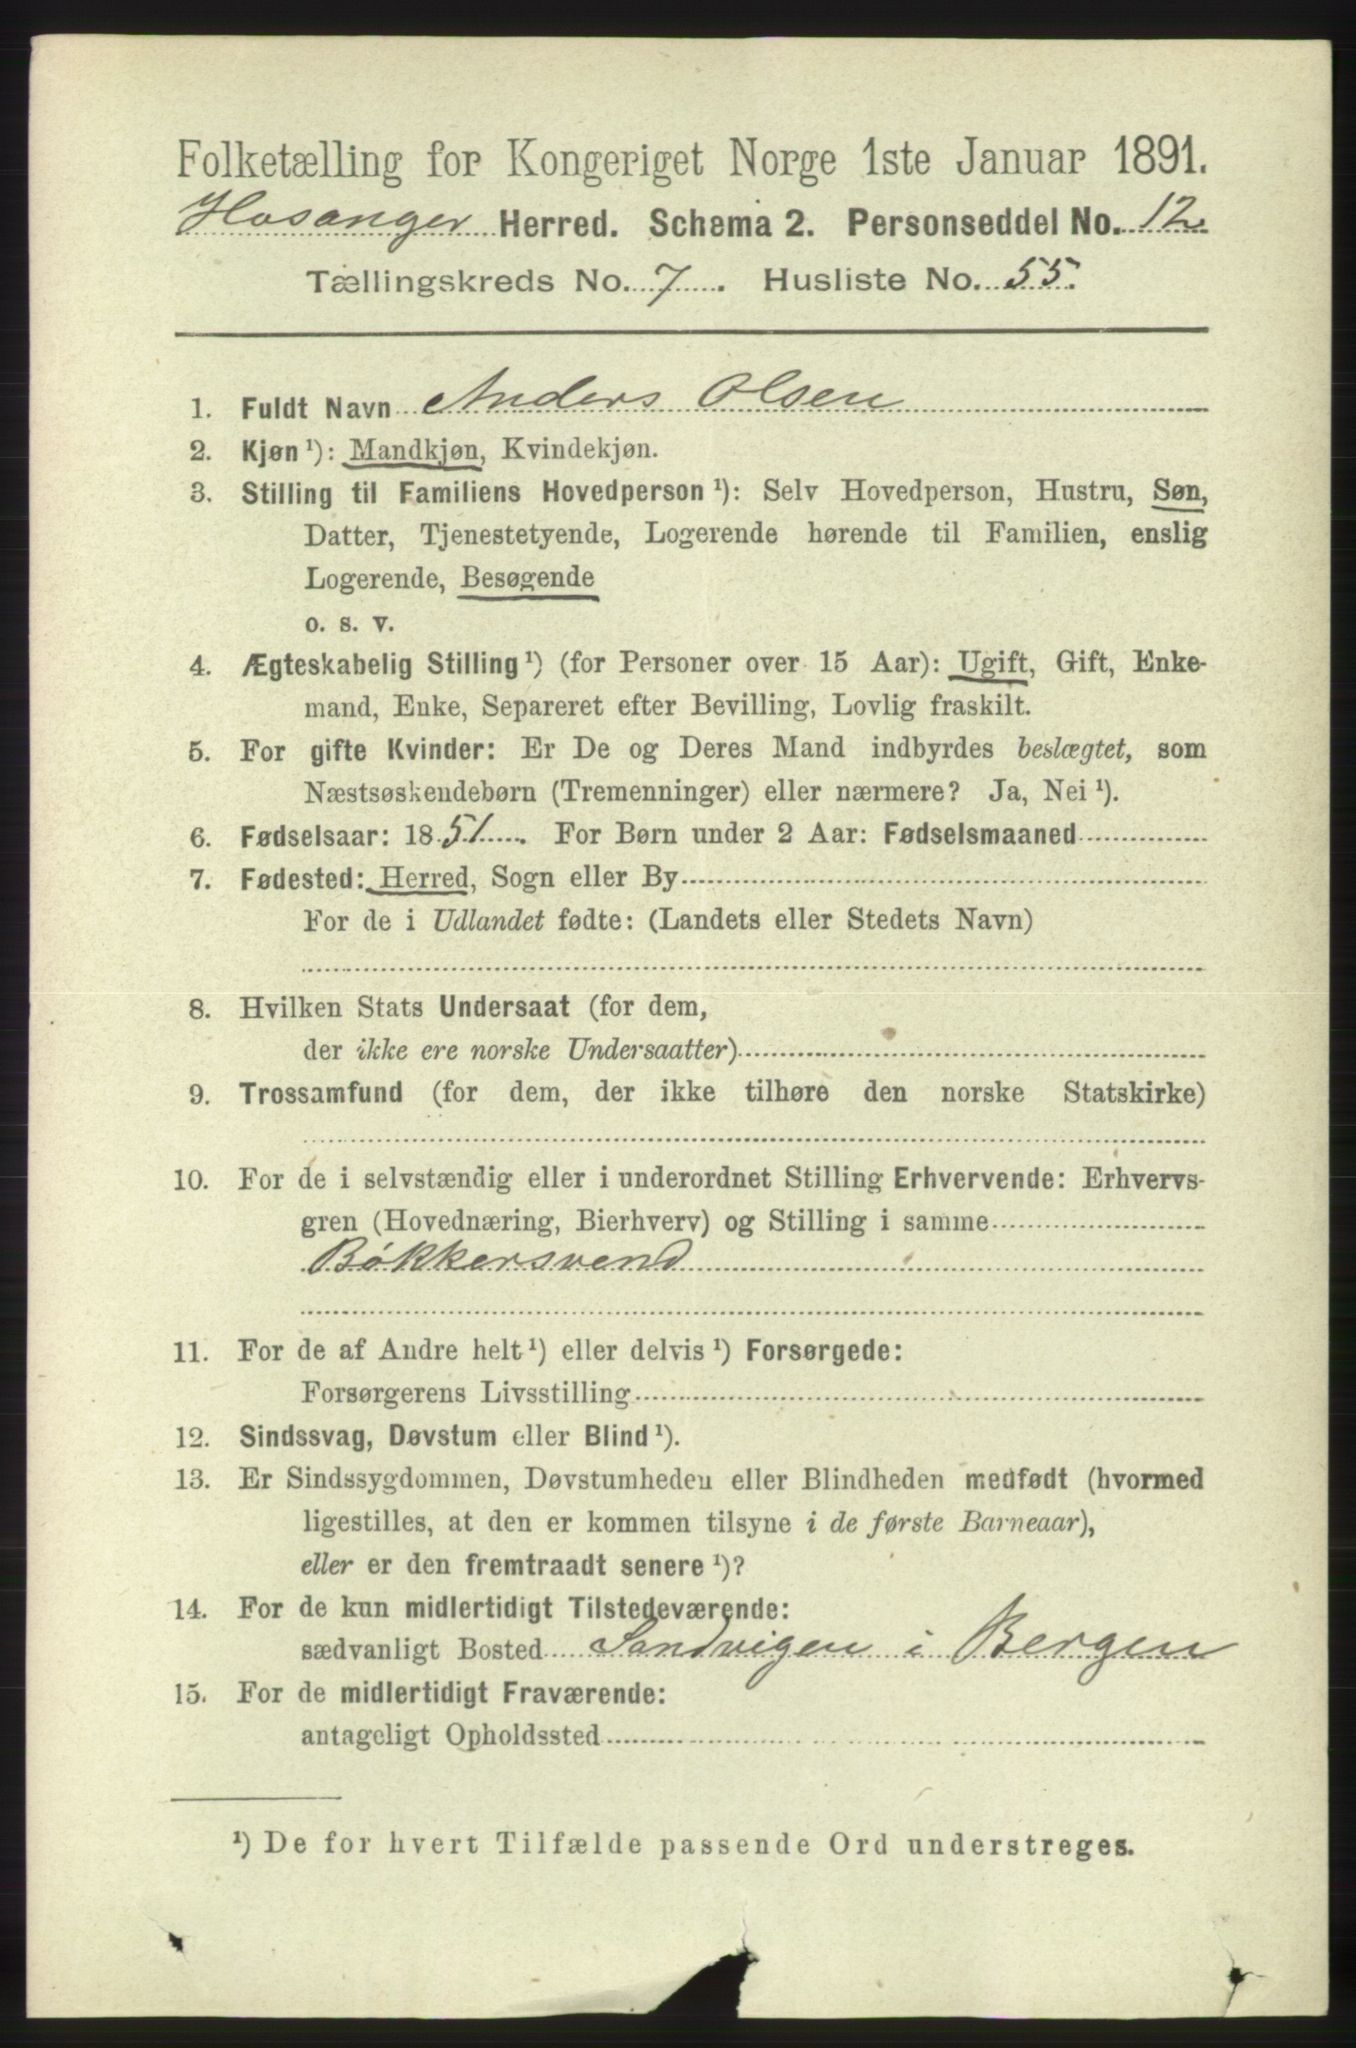 Folketælling for Kongeriget Norge 1ste Januar 1891.
Hosanger Herred. Schema 2. Personseddel No. 12
Tællingskreds No. 7. Husliste No. 55.
1. Fuldt Navn Anders Olsen
2. Kjøn ¹): Mandkjøn, Kvindekjøn.
3. Stilling til Familiens Hovedperson ¹): Selv Hovedperson, Hustru, Søn,
Datter, Tjenestetyende, Logerende hørende til Familien, enslig
Logerende, Besøgende
o. s. v.
4. Ægteskabelig Stilling ¹) (for Personer over 15 Aar): Ugift, Gift, Enke-
mand, Enke, Separeret efter Bevilling, Lovlig fraskilt.
5. For gifte Kvinder: Er De og Deres Mand indbyrdes beslægtet, som
Næstsøskendebørn (Tremenninger) eller nærmere? Ja, Nei ¹).
6. Fødselsaar: 1851. For Børn under 2 Aar: Fødselsmaaned
7. Fødested: Herred, Sogn eller By
For de i Udlandet fødte: (Landets eller Stedets Navn)
8. Hvilken Stats Undersaat (for dem,
der ikke ere norske Undersaatter)
9. Trossamfund (for dem, der ikke tilhøre den norske Statskirke)
10. For de i selvstændig eller i underordnet Stilling Erhvervende: Erhvervs-
gren (Hovednæring, Bierhverv) og Stilling i samme
Bøkkersvend
11. For de af Andre helt ¹) eller delvis ¹) Forsørgede:
Forsørgerens Livsstilling
12. Sindssvag, Døvstum eller Blind ¹).
13. Er Sindssygdommen, Døvstumheden eller Blindheden medfødt (hvormed
ligestilles, at den er kommen tilsyne i de første Barneaar),
eller er den fremtraadt senere ¹)?
14. For de kun midlertidigt Tilstedeværende:
sædvanligt Bosted Sandvigen i Bergen
15. For de midlertidigt Fraværende:
antageligt Opholdssted
¹) De for hvert Tilfælde passende Ord understreges.